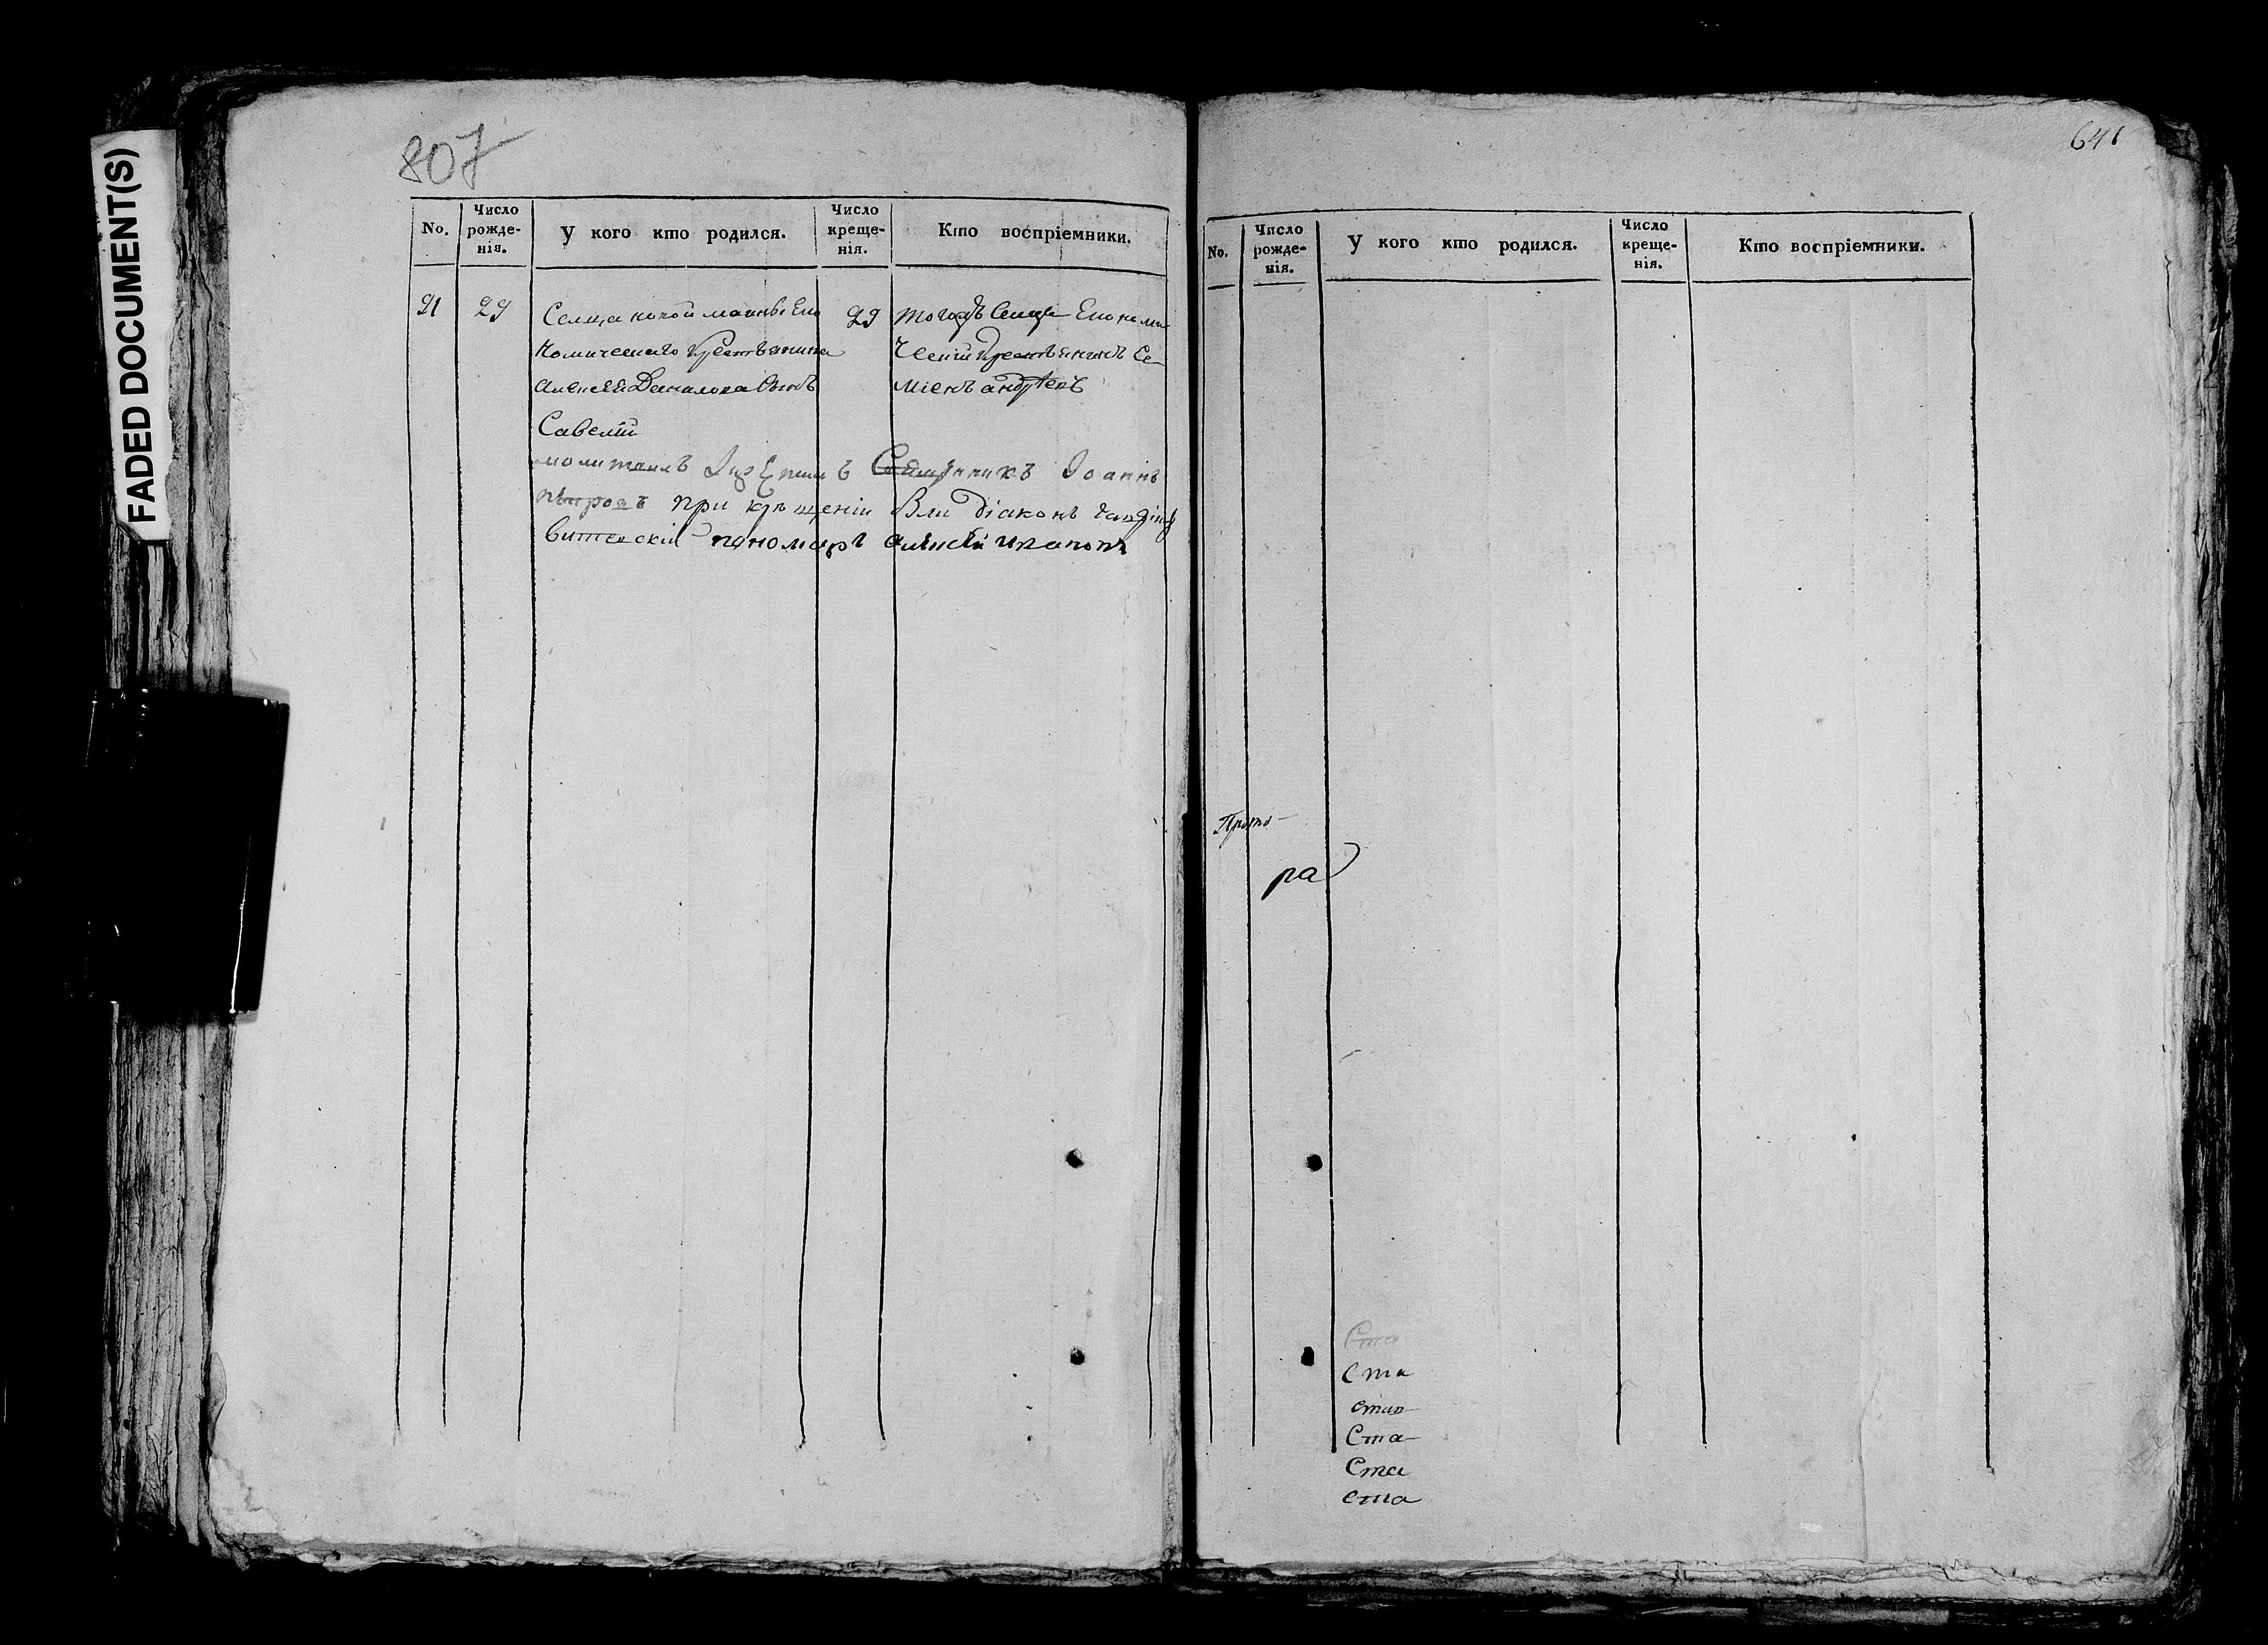 FADED DOCUMENT(S)
807
No.
Число рожде-нія.
У кого кто родился.
Число креще-нія.
Кто воспріемники.
21
29
Селца новой маиньи Еко
номическаго крестьянина
алексѣя Данилова Сынъ
Савелій
29
тогожъ Селца Економи
ческій крестьянинъ Се-
миенъ андреевъ
молитвилъ Священникъ Іоаннъ
при крещеніи были діаконъ
витевскій пономарь алексѣй ивановъ
641
No.
Число рожде-нія.
У кого кто родился.
Число креще-нія.
Кто воспріемники.
Прото-
ра
Ста
Ста
ста
Ста
Ста
ста